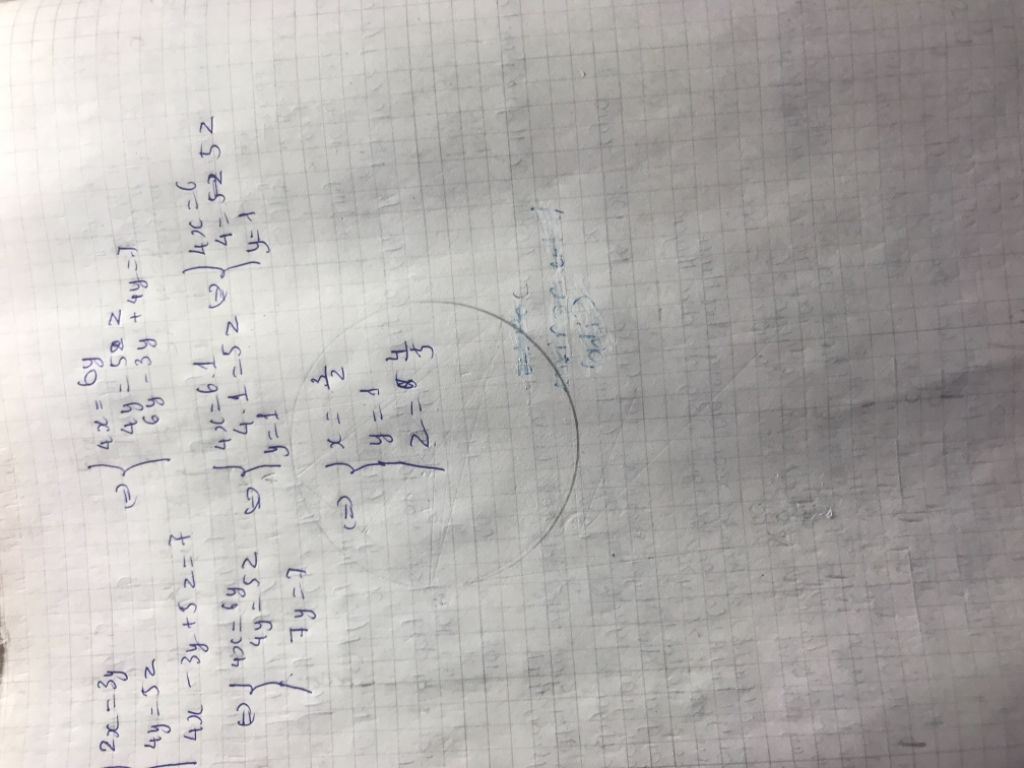 2x = 3y
4y = 5z
4x - 3y + 5z = 7
⇔ 4x = 6y
4y = 5z
6y - 3y + 4y = 7
⇔ 4x = 6y
4y = 5z
7y = 7
⇔ 4x = 6.1
4.1 = 5z
y = 1
⇔ 4x = 6
4 = 5z
y = 1
⇔ x = 3/2
y = 1
z = 4/5